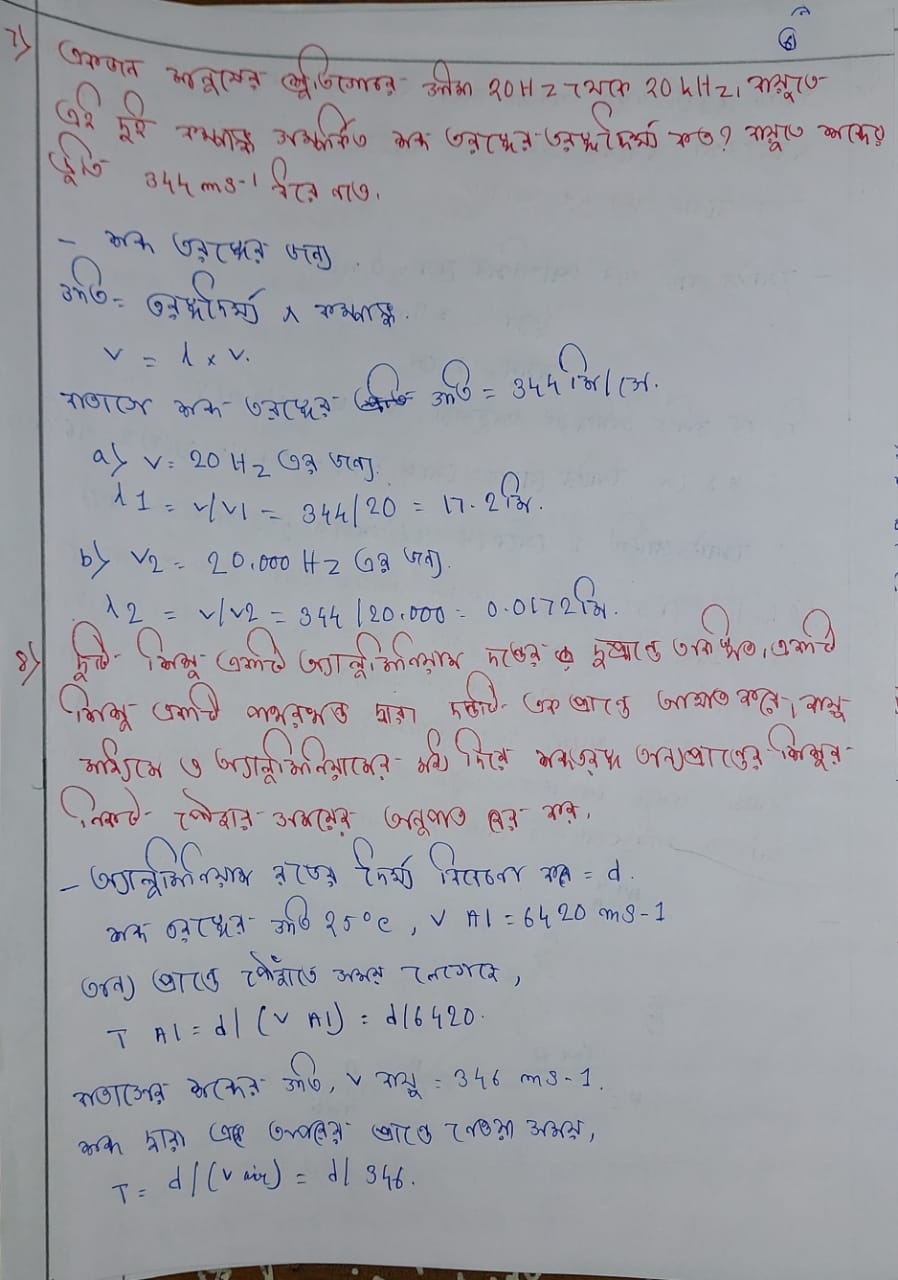 ৭) একজন মানুষের শ্রুতিগোচর সীমা 20Hz থেকে 20kHz, বায়ুতে
এই দুই কম্পাঙ্ক সম্পর্কিত শব্দ তরঙ্গের তরঙ্গদৈর্ঘ্য কত? বায়ুতে শব্দের
দ্রুতি 344 ms-1 ধরে নাও.
- শব্দ তরঙ্গের জন্য
গতি= তরঙ্গদৈর্ঘ্য x কম্পাঙ্ক.
v = λ x v.
বাতাসে শব্দ তরঙ্গের গতি = 344 মি/সে.
a) v= 20 Hz এর জন্য.
λ1 = v/v1 = 344/20 = 17.2মি.
b) v2 = 20.000 Hz এর জন্য.
λ2 = v/v2 = 344/20.000= 0.0172মি.
৪) দুটি শিশু একটি অ্যালুমিনিয়াম দন্ডের দুপ্রান্তে অবস্থিত, একটি
শিশু একটি পাথরখন্ড দ্বারা দন্ডটি এক প্রান্তে আঘাত করে, বায়ু
মাধ্যমে ও অ্যালুমিনিয়ামের মধ্য দিয়ে শব্দতরঙ্গ অন্যপ্রান্তের শিশুর
নিকট পৌছার সময়ের অনুপাত বের কর.
- অ্যালুমিনিয়াম রডের দৈর্ঘ্য বিবেচনা করুন = d.
শব্দ তরঙ্গের গতি 25°c, v Al = 6420 ms-1
অন্য প্রান্তে পৌঁছাতে সময় লেগেছে,
T Al = d/ (v Al) = d/6420.
বাতাসের শব্দের গতি, v বায়ু = 346 ms-1.
শব্দ দ্বারা অপরের প্রান্তে নেওয়া সময়,
T= d/(v air) = d/ 346.